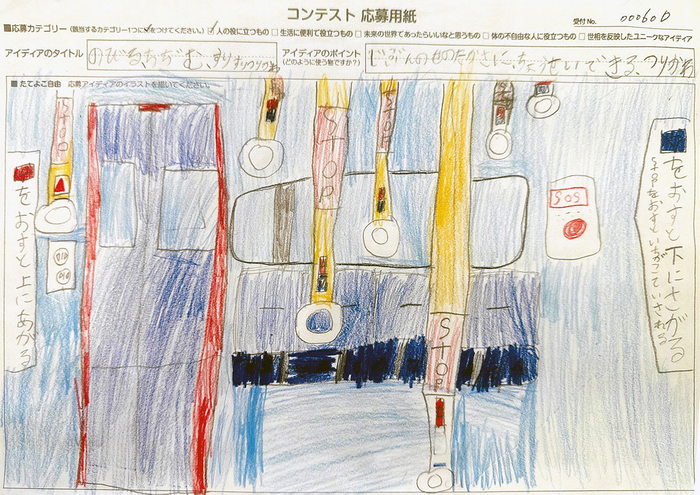 コンテスト 応募用紙
受付No. 00060D
■応募カテゴリー(該当するカテゴリー1つに✓をつけてください。) ☑人の役に立つもの □生活に便利で役立つもの □未来の世界であったらいいなと思うもの □体の不自由な人に役立つもの □世相を反映したユニークなアイディア
アイディアのタイトル のびるちぢむ、すりすりつりかわ
アイディアのポイント
(どのように使う物ですか?)
じぶんのせのたかさに、ちょうせいできる、つりかわ
■たてよこ自由 応募アイディアのイラストを描いてください。
STOP
STOP
STOP
STOP
SOS
をおすと上にあがる
をおすと下にさがる